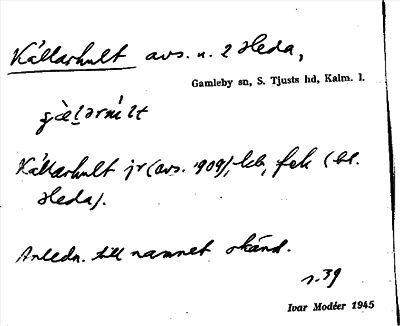 Källarhult avs. u. 2 Heda,
Gamleby sn, S. Tjusts hd, Kalm. l.
Källarhult jr (avs. 1909), lcb, fek (bl.
Heda).
Anledn. till namnet okänd.
s. 39
Ivar Modéer 1945